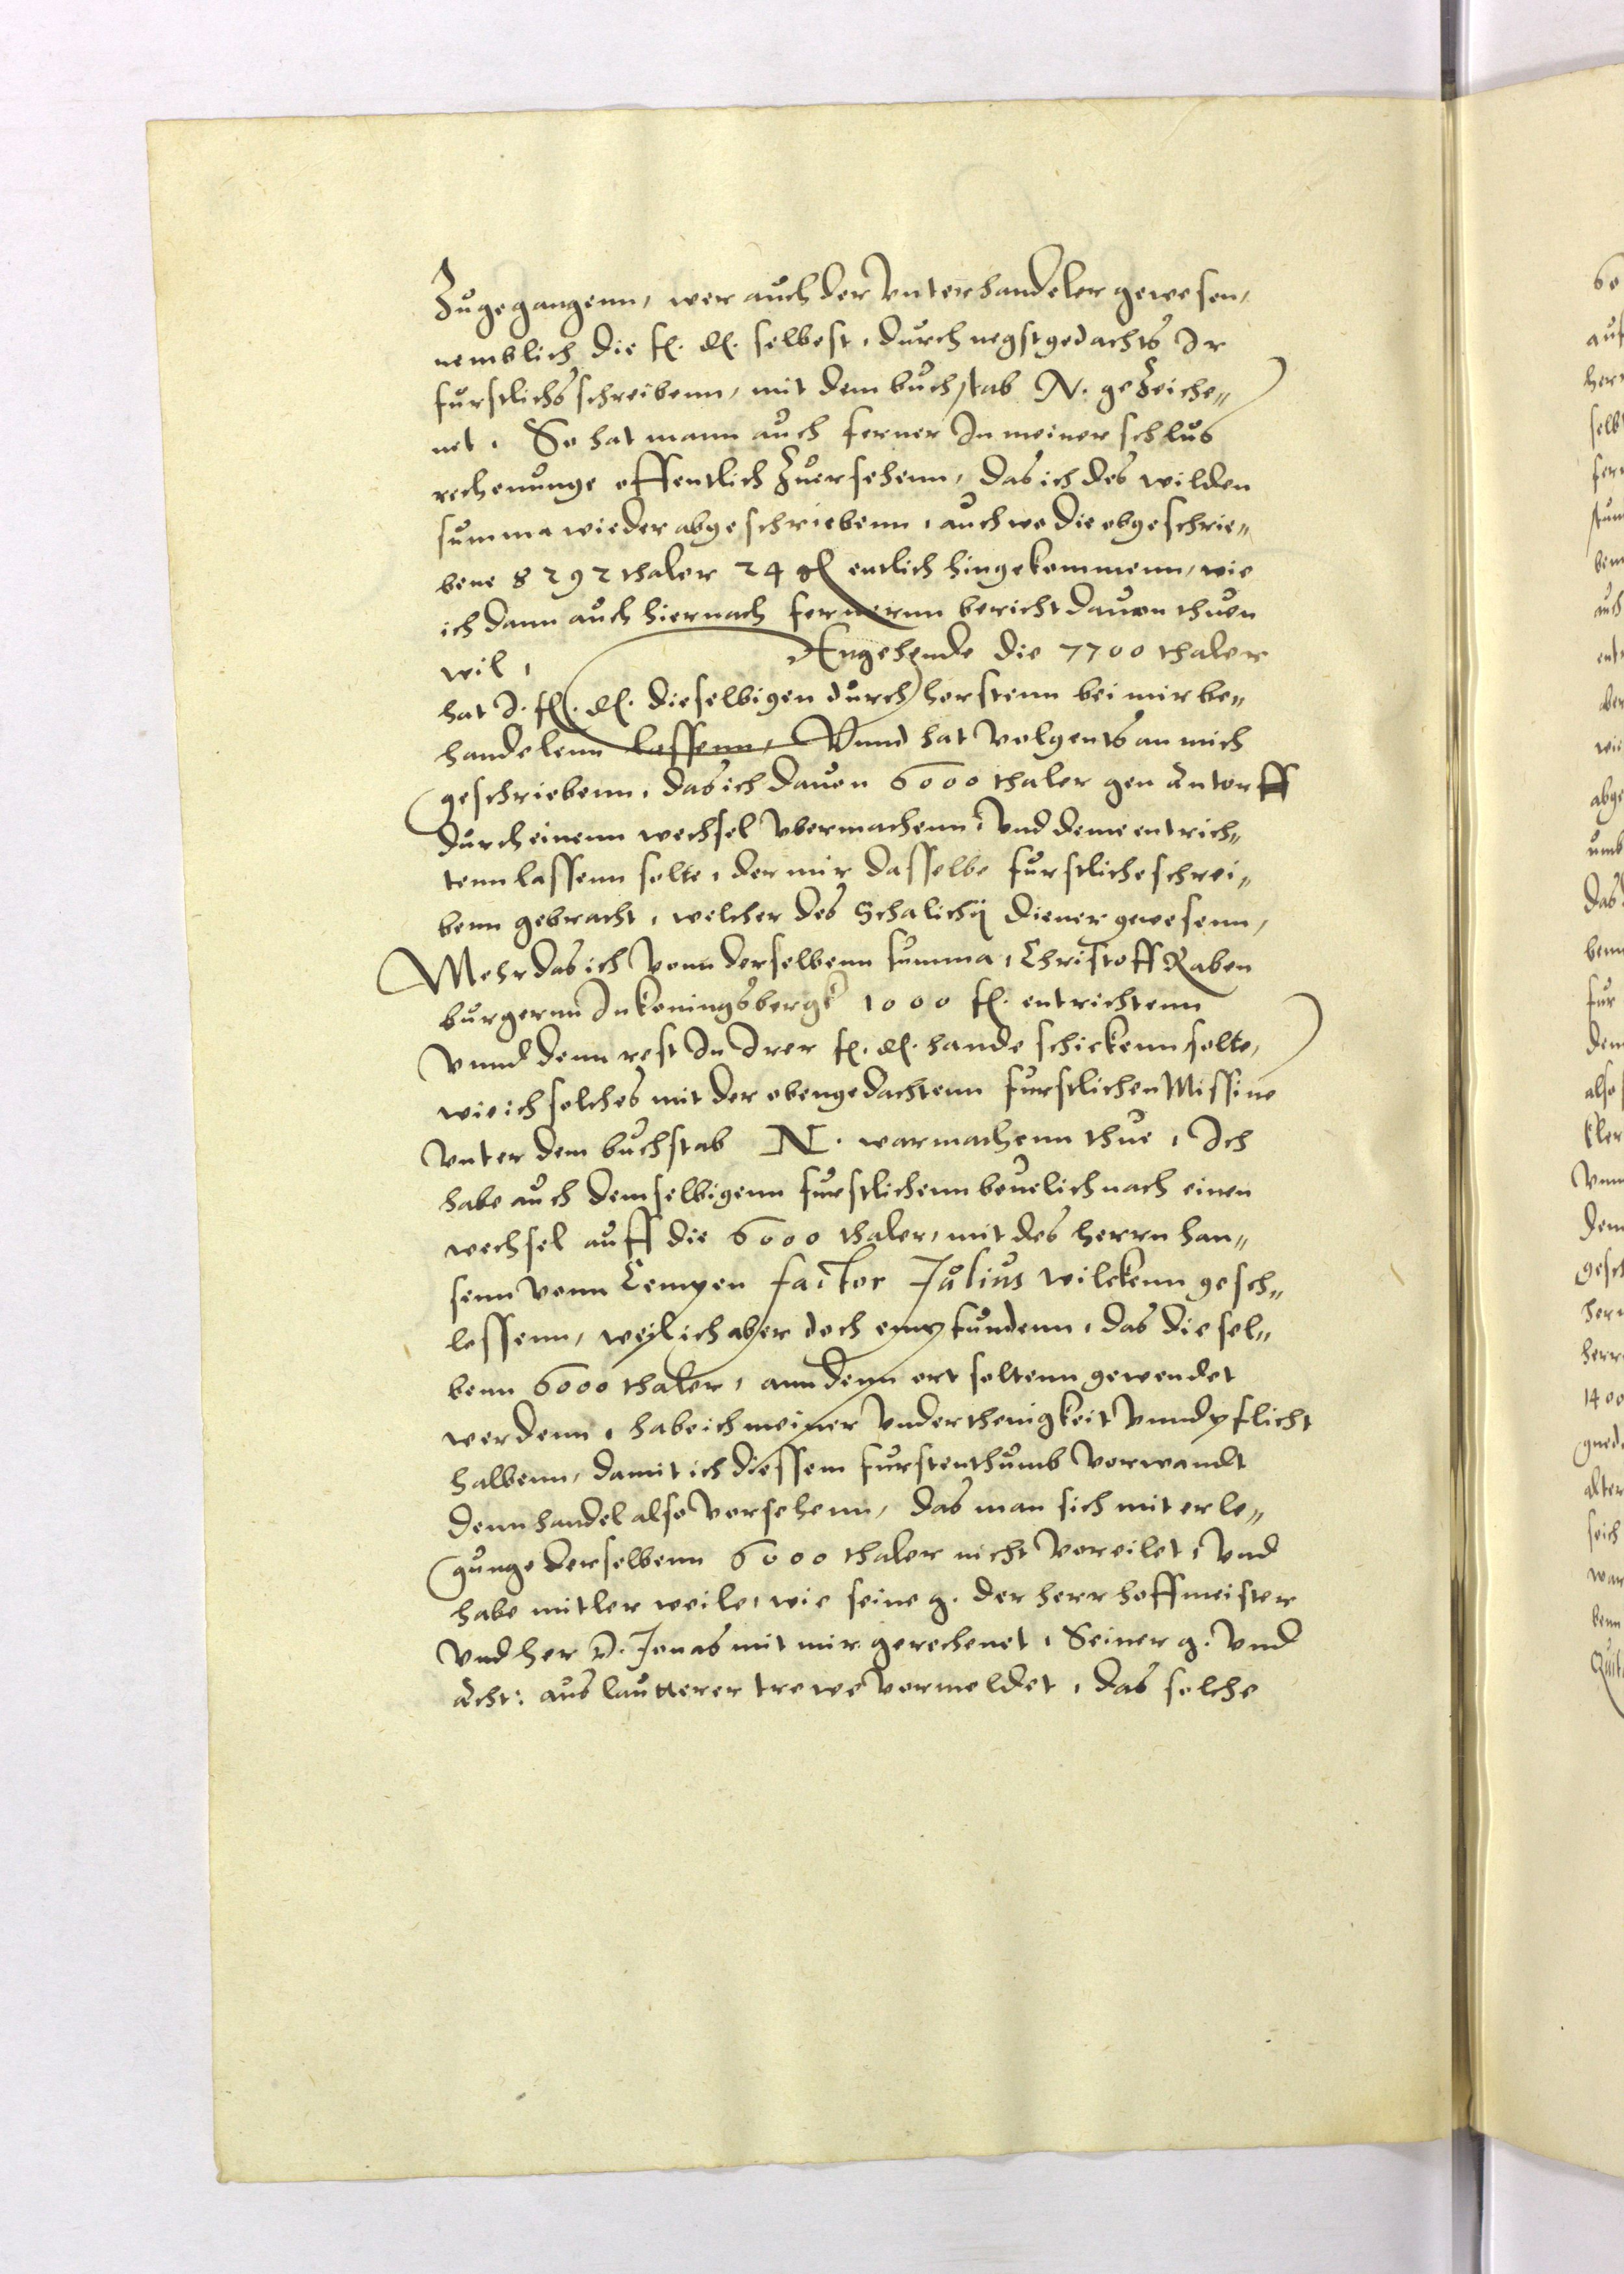 Zugegangenn, wer auch der Vnterhandeler gewesen,
nemblich die f. D. selbest, durch negstgedachts Ir
furstlichs schreibenn, mit dem buchstab N. geZeiche„
net. So hat mann auch ferner In meiner schlus
rechenunge offentlich Zuersehenn, das ich des wilden
summa wieder abgeschriebenn, auch wo die obgeschrie„
bene 8292 thaler 24 gl entlich hingekommenn, wie
ich dann auch hiernach fernernn bericht dauon thuen
wil, Angehende die 7700 thaler
hat I. f. D. dieselbigen durch horstenn bei mir be„
handelenn lassenn, Vnnd hat volgents an mich
geschriebenn, das ich dauon 6000 thaler gen Antorff
durch einenn wechsel vbermachenn, Vnd deme entrich„
tenn lassenn solte, der mir dasselbe furstliche schrei„
benn gebracht, welcher des Schalichij diener gewesenn,
Mehr das ich vonn derselbenn summa, Christoff Raben
burgernn In koningsbergk 1000 f. entrichtenn
vnnd denn rest In Irer f. D. hande schickenn solte,
wie ich solches mit der obengedachtenn furstlichen Missiue
vnter dem buchstab N. warmachenn thue, Ich
habe auch demselbigenn furstlichenn beuelich nach einen
wechsel auff die 6000 thaler, mit des herrn han„
senn vonn Lempen factor Julius wilckenn gesch„
lossenn, weil ich aber doch empfundenn, das die sel„
benn 6000 thaler, ann denn ort soltenn gewendet
werdenn, habe ich meiner vnderthenigkeit vnnd pflicht
halbenn, damit ich diessem furstenthumb vorwandt
denn handel also vorsehenn, das man sich mit erle„
gunge derselbenn 6000 thaler nicht voreilet, Vnd
habe mitler weile, wie seine g. der herr hoffmeister
vnd her D. Jonas mit mir gerechenet, Seiner g. vnd
acht: aus lautterer trewe vormeldet, das solche